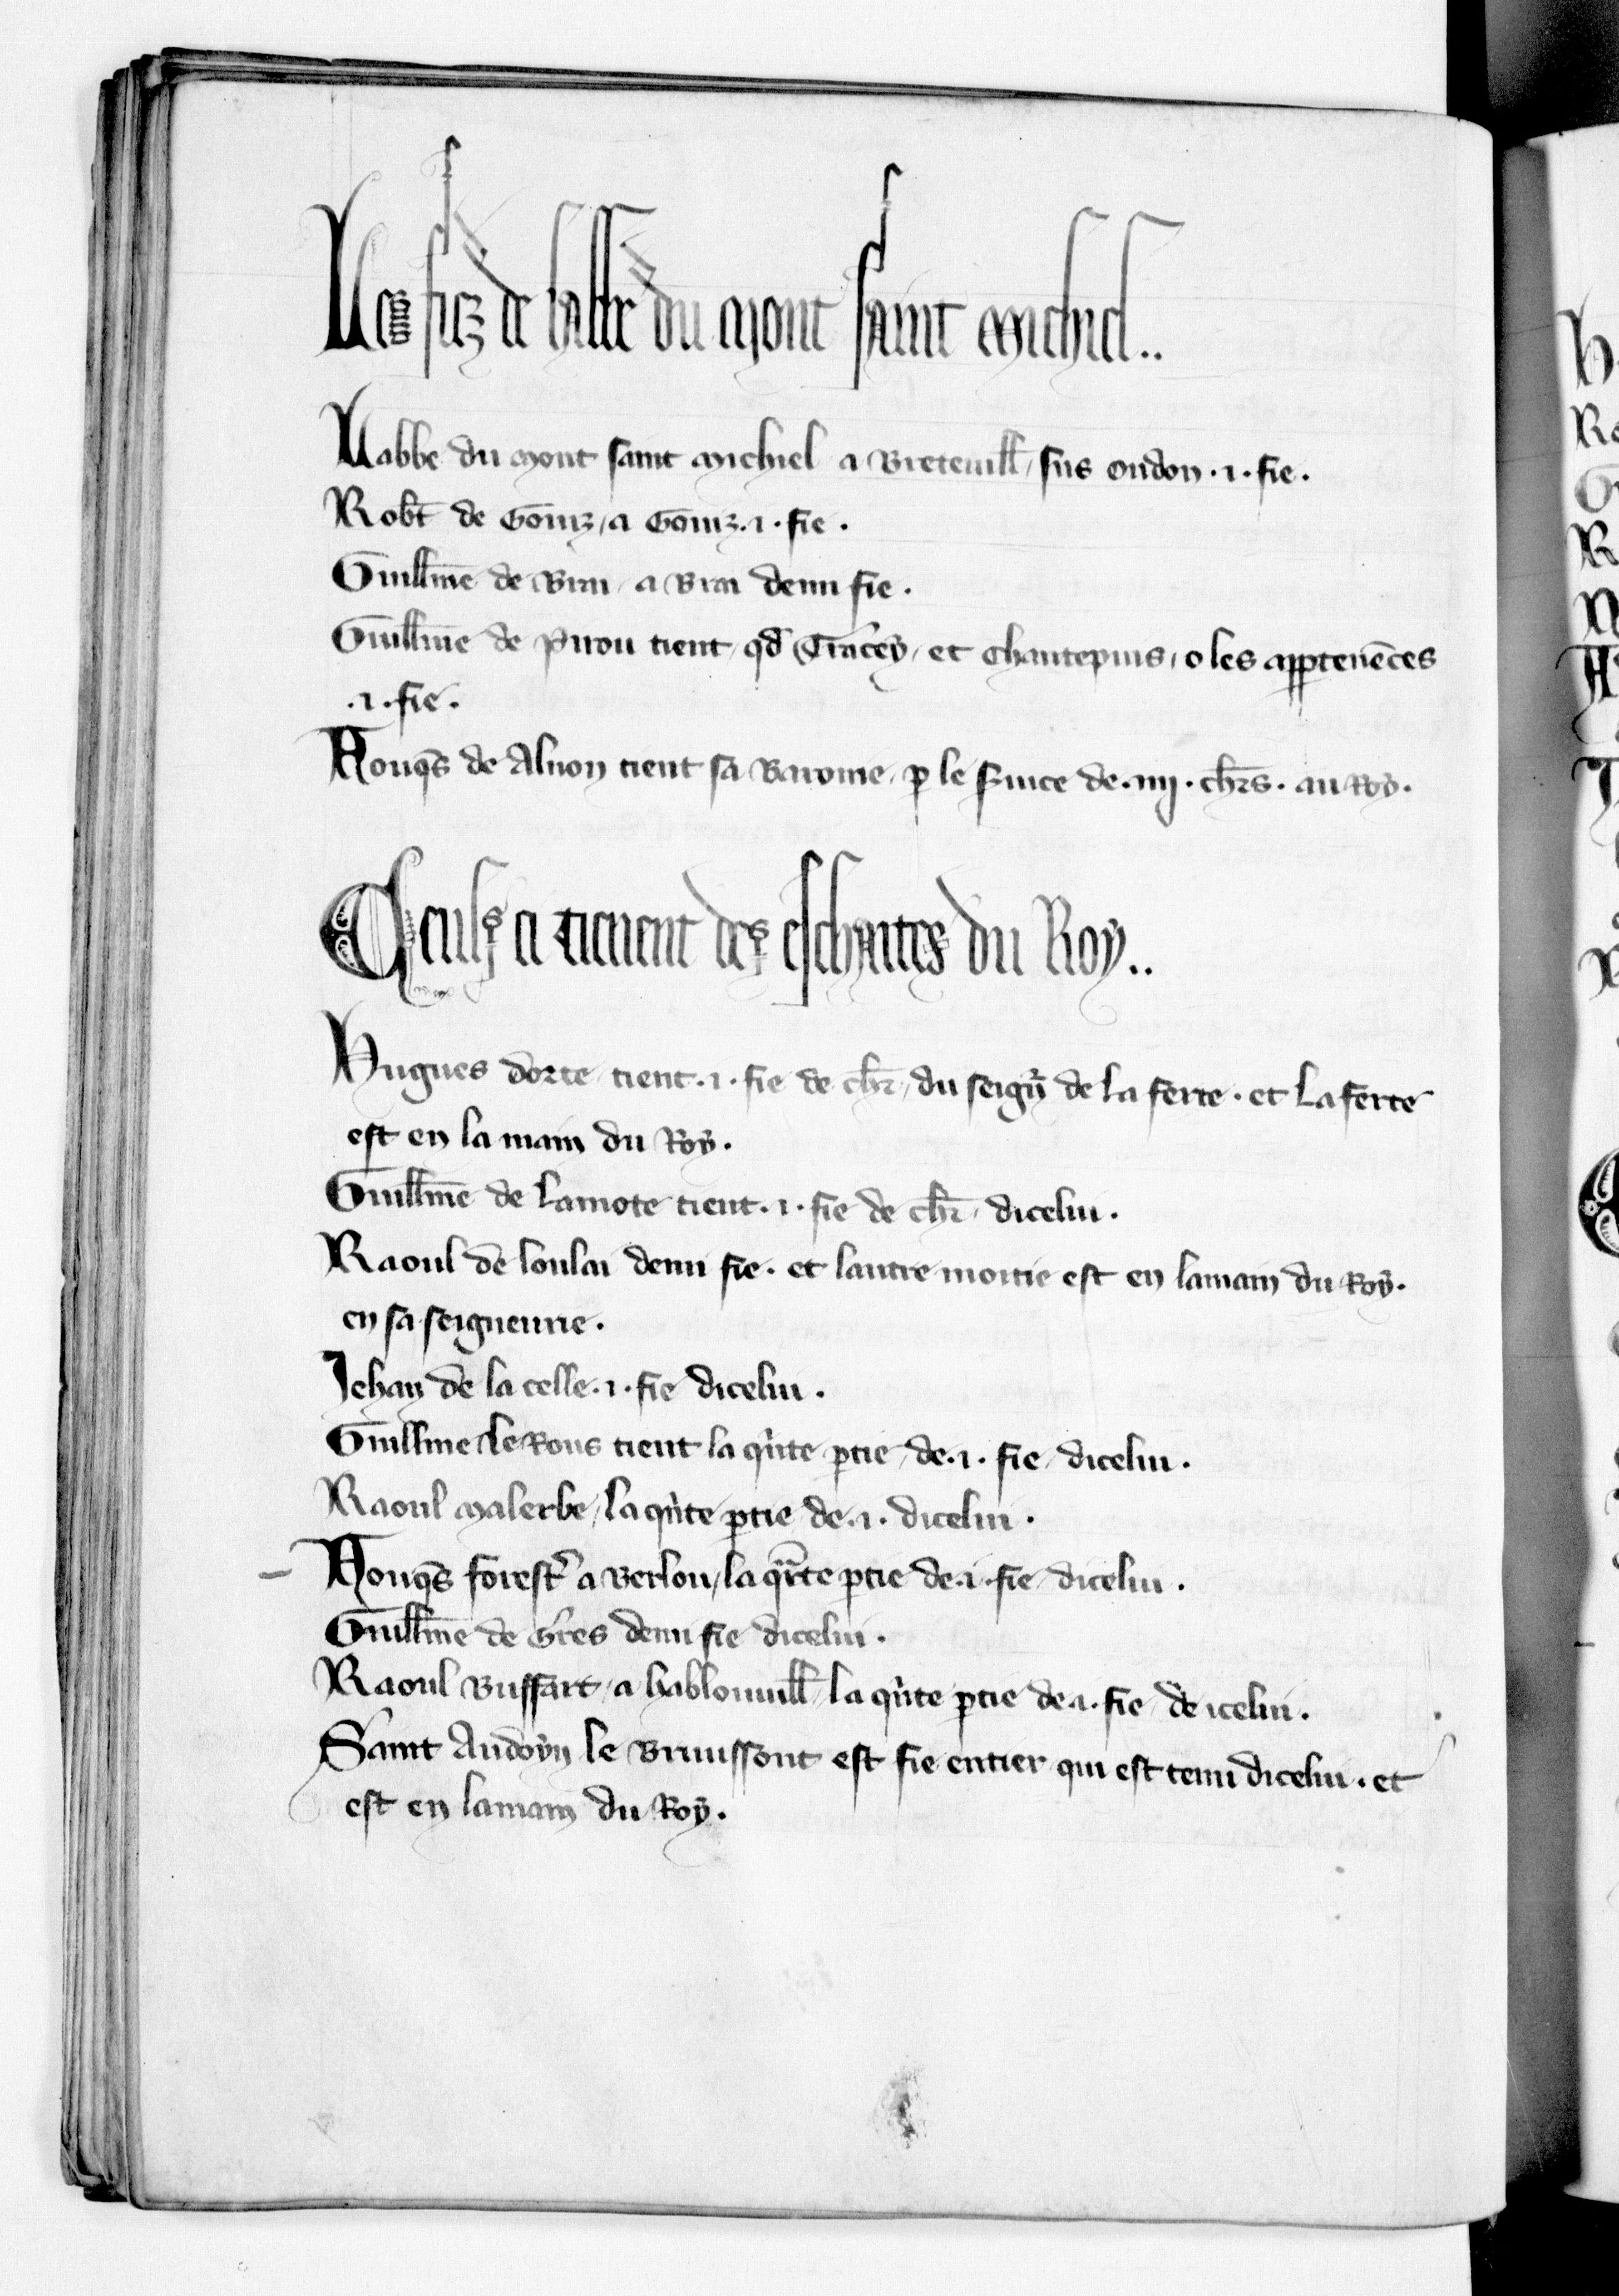 Les fiez de labbe du mont saint michiel..
Labbe du mont saint michiel a Breteuill sus oudon .i. fie.
Robt de Gomiz a Gomiz .i. fie.
Guillme de Brai a Brai demi fie.
Guillme de Pirou tient qd Tracey et Chantepuis o les appertenences
.i. fie.
Fouqs de Alnou tient sa Baronie p le suice de .iiij. chrs. au Roy.
Ceuls ci tienent des eschaites du Roy..
Hugues dorte tient .i. fie de chr du seignr de la ferte. et La ferte
est en la main du Roy.
Guillme de Lamote tient .i. fie de chr dicelui.
Raoul de loulai demi fie. et lautre moitie est en lamain du Roy.
en sa seigneurie.
Jehan de la celle .i. fie dicelui.
Guillme le Rous tient la qrte ptie de .i. fie dicelui.
Raoul malerbe la qrte ptie de .i. dicelui.
Fouqs forestr a Berlou la qrte ptie de .i. fie dicelui.
Guillme de Gres demi fie dicelui.
Raoul Buffart a hablouuill la qrte ptie de .i. fie de icelui.
Saint Audoyn le Bruissout est fie entier qui est tenu dicelui. et
est en lamain du Roy.